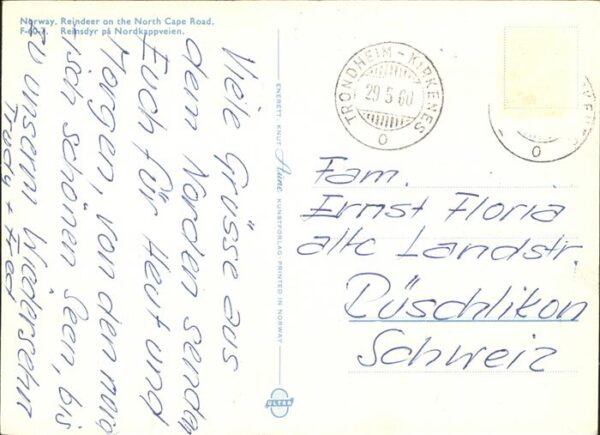 Norway. Reindeer on the North Cape Road.
F-60-7. Reinsdyr på Nordkappveien.
Viele Grüsse aus
dem Norden senden
Euch für Heut und
Morgen, von den
schönen Seen, bis
zu unserm Wiedersehn
Trudy + Fred
ENERETT: KNUT Aune KUNSTFORLAG PRINTED IN NORWAY
ULTRA
TRONDHEIM - KIRKENES
29 5 60
O
O
Fam.
Ernst Floria
alte Landstr.
Rüschlikon
Schweiz